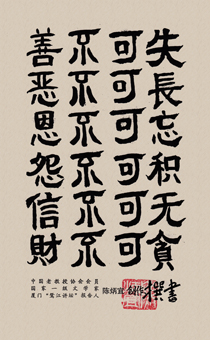 失長忘积无貪
可可可可可可
不不不不不不
善恶恩怨信財
中国老教授协会会员
国家一级文学家
厦门“鹭江讲坛”报告人
陈炳宜 创作 撰書